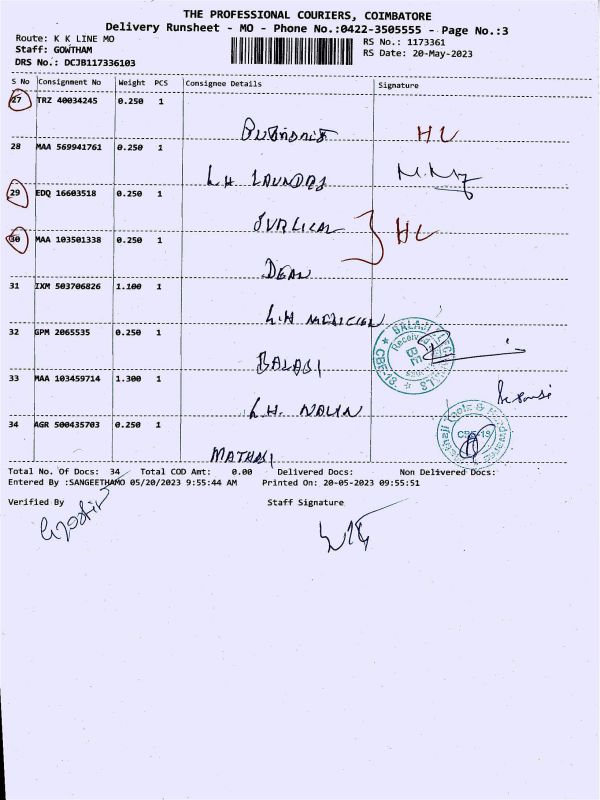 THE PROFESSIONAL COURIERS, COIMBATORE
Delivery Runsheet - MO - Phone No.:0422-3505555 - Page No.:3
Route: K K LINE MO
RS No.: 1173361
Staff: GOWTHAM
RS Date: 20-May-2023
DRS No.: DCJB117336103
S No Consignment No Weight PCS Consignee Details Signature
27 TRZ 40034245 0.250 1
HL
28 MAA 569941761 0.250 1
L.H LAUNDRY
29 EDQ 16603518 0.250 1
HL
30 MAA 103501338 0.250 1
DEAN
31 IXM 503706826 1.100 1
L.H MEDICIEN
32 GPM 2065535 0.250 1
BALAJI
33 MAA 103459714 1.300 1
L.H.
34 AGR 500435703 0.250 1
Total No. Of Docs: 34 Total COD Amt: 0.00 Delivered Docs: Non Delivered Docs:
Entered By :SANGEETHAMO 05/20/2023 9:55:44 AM Printed On: 20-05-2023 09:55:51
Verified By Staff Signature